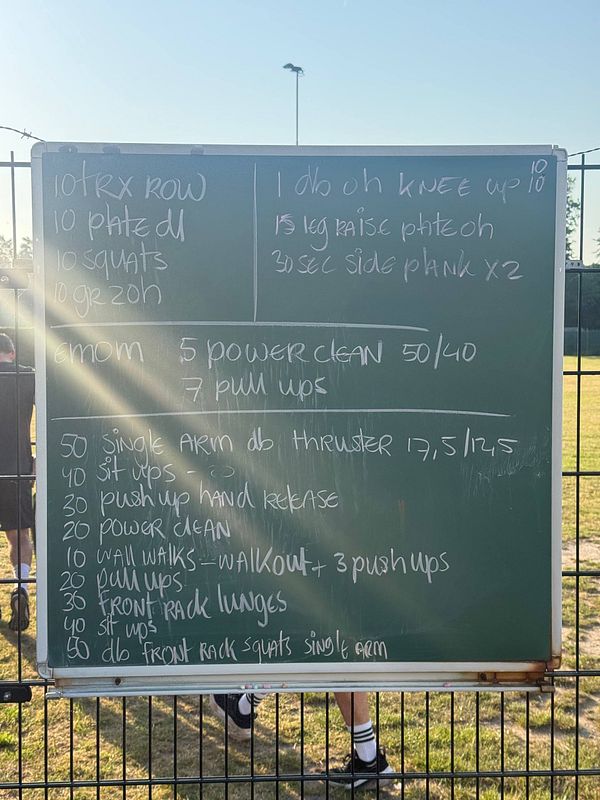 10 TRX ROW
10 plate dl
10 squats
10 gr2oh
1 db oh KNEE up 10 10
15 leg RAISE plate oh
30 SEC side plank X2
EMOM 5 POWER CLEAN 50/40
7 pull ups
50 SINGLE ARM db THRUSTER 17,5/12,5
40 sit ups -
30 push up hand RELEASE
20 POWER CLEAN
10 WALL WALKS - WALKout + 3 push ups
20 pull ups
30 FRONT RACK lunges
40 sit ups
50 db FRONT RACK squats single ARM